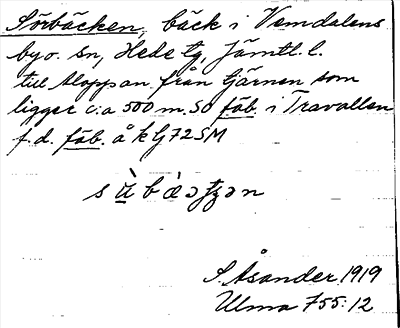 Sörbäcken, bäck i Vemdalens
byo. sn, Hede tg, Jämtl. l.
till Aloppan från tjärnen som
ligger c:a 500 m. SO fäb. i Travallen
f.d. fäb. å k G72SM
S. Åsander 1919
Ulma 755:12